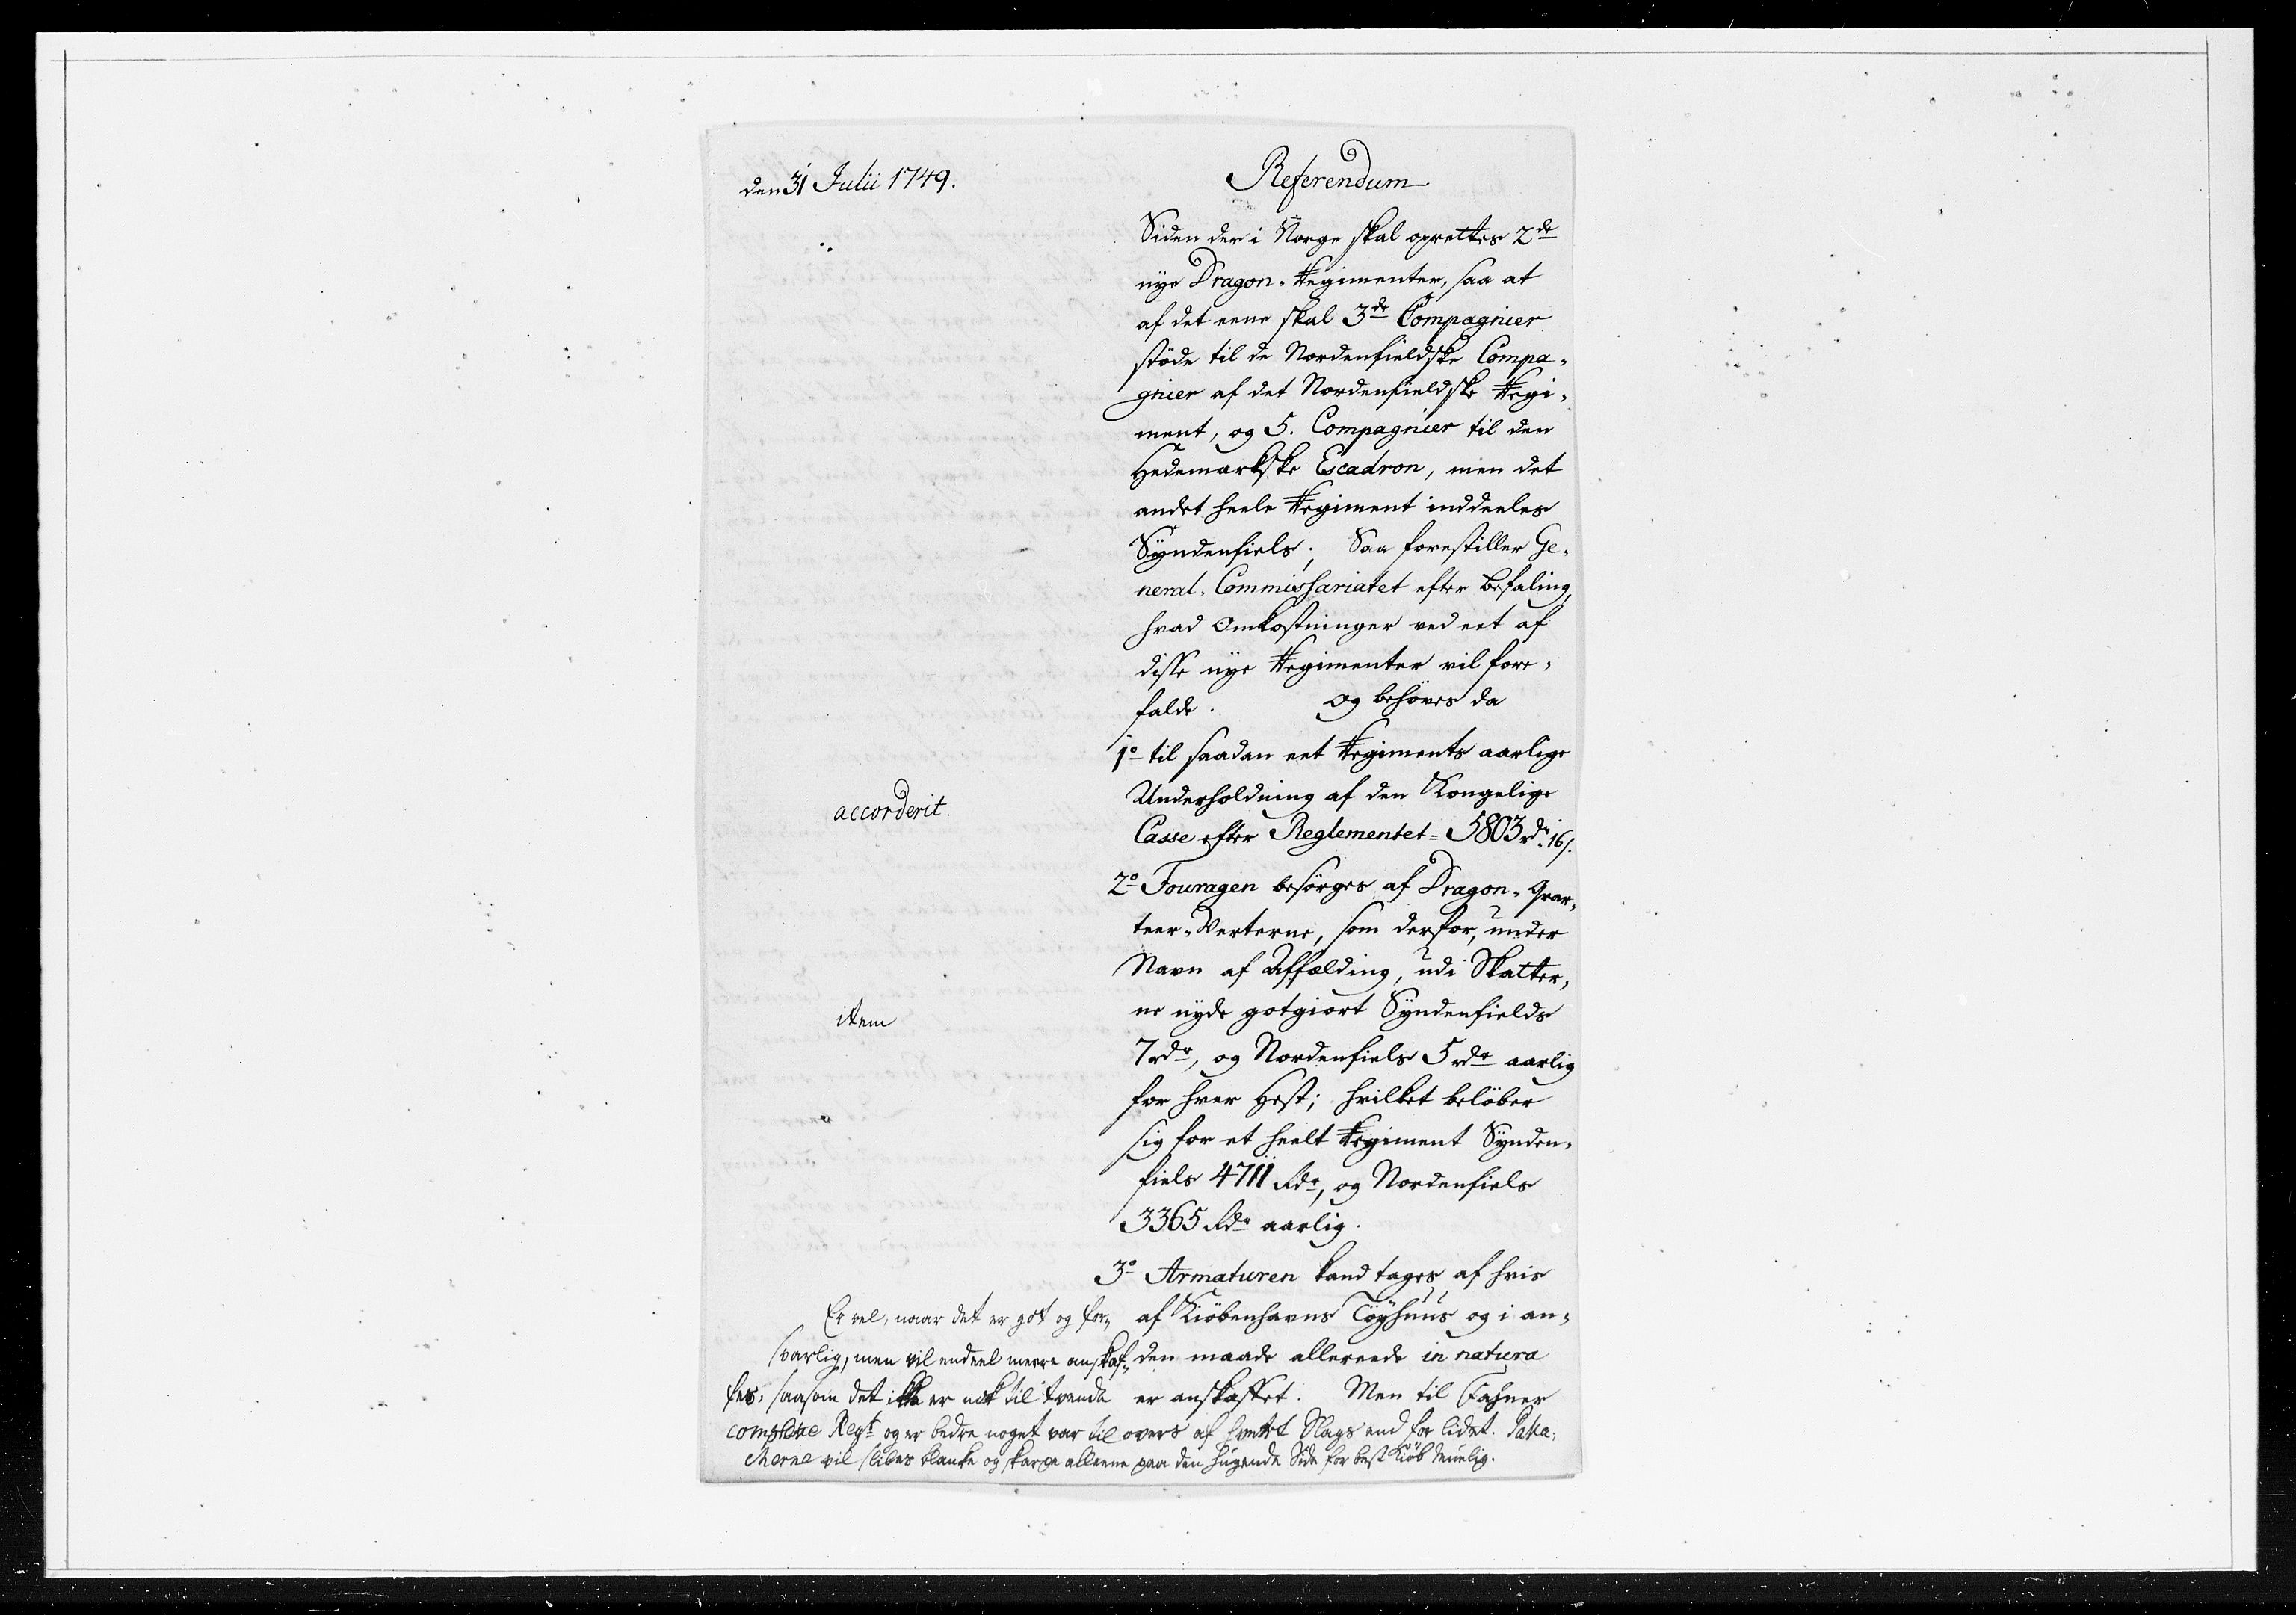 den 31 Julii 1749.
Referendum
Siden der i Norge skal oprettes 2de
nye Dragon-Regimenter, saa at
af det eene skal 3de Compagnier
støde til de Nordenfieldske Compa-
gnier af det Nordenfieldske Regi-
ment, og 5. Compagnier til den
Hedemarkske Escadron, men det
andet heele Regiment inddeeles
Syndenfiels; Saa forestiller Ge-
neral-Commissariatet efter befaling,
hvad Omkostninger ved eet af
disse nye Regimenter vil fore-
falde. Og behøves da
1o til saadan eet Regiments aarlige
Underholdning af den Kongelige
Casse efter Reglementet = 5803 rdr. 16 s.
accorderit.
2o Fouragen besørges af Dragon-Qvar-
teer-Verterne, som derfor, under
Navn af Affælding, udi Skatter-
ne nyde gotgiort Syndenfields
7 rdr, og Nordenfiels 5 rdr aarlig
for hver Hest; hvilket beløber
sig for et heelt Regiment Synden-
fiels 4711 Rdr, og Nordenfiels
3365 Rdr aarlig.
item
3o Armaturen kand tages af hvis
af Kiøbenhavns Tøyhuus og i an-
den maade allereede in natura
er anskaffet. Men til Fahner
Er vel, naar det er got og for-
svarlig, men vil endeel meere anskaf-
fes, saasom det ikke er nok til tvende
complette Regt og er bedre noget var til overs af hvert Slags end for lidet. Palla-
cherne vil slibes blanke og skarpe alleene paa den hugende Side for best Kiøb